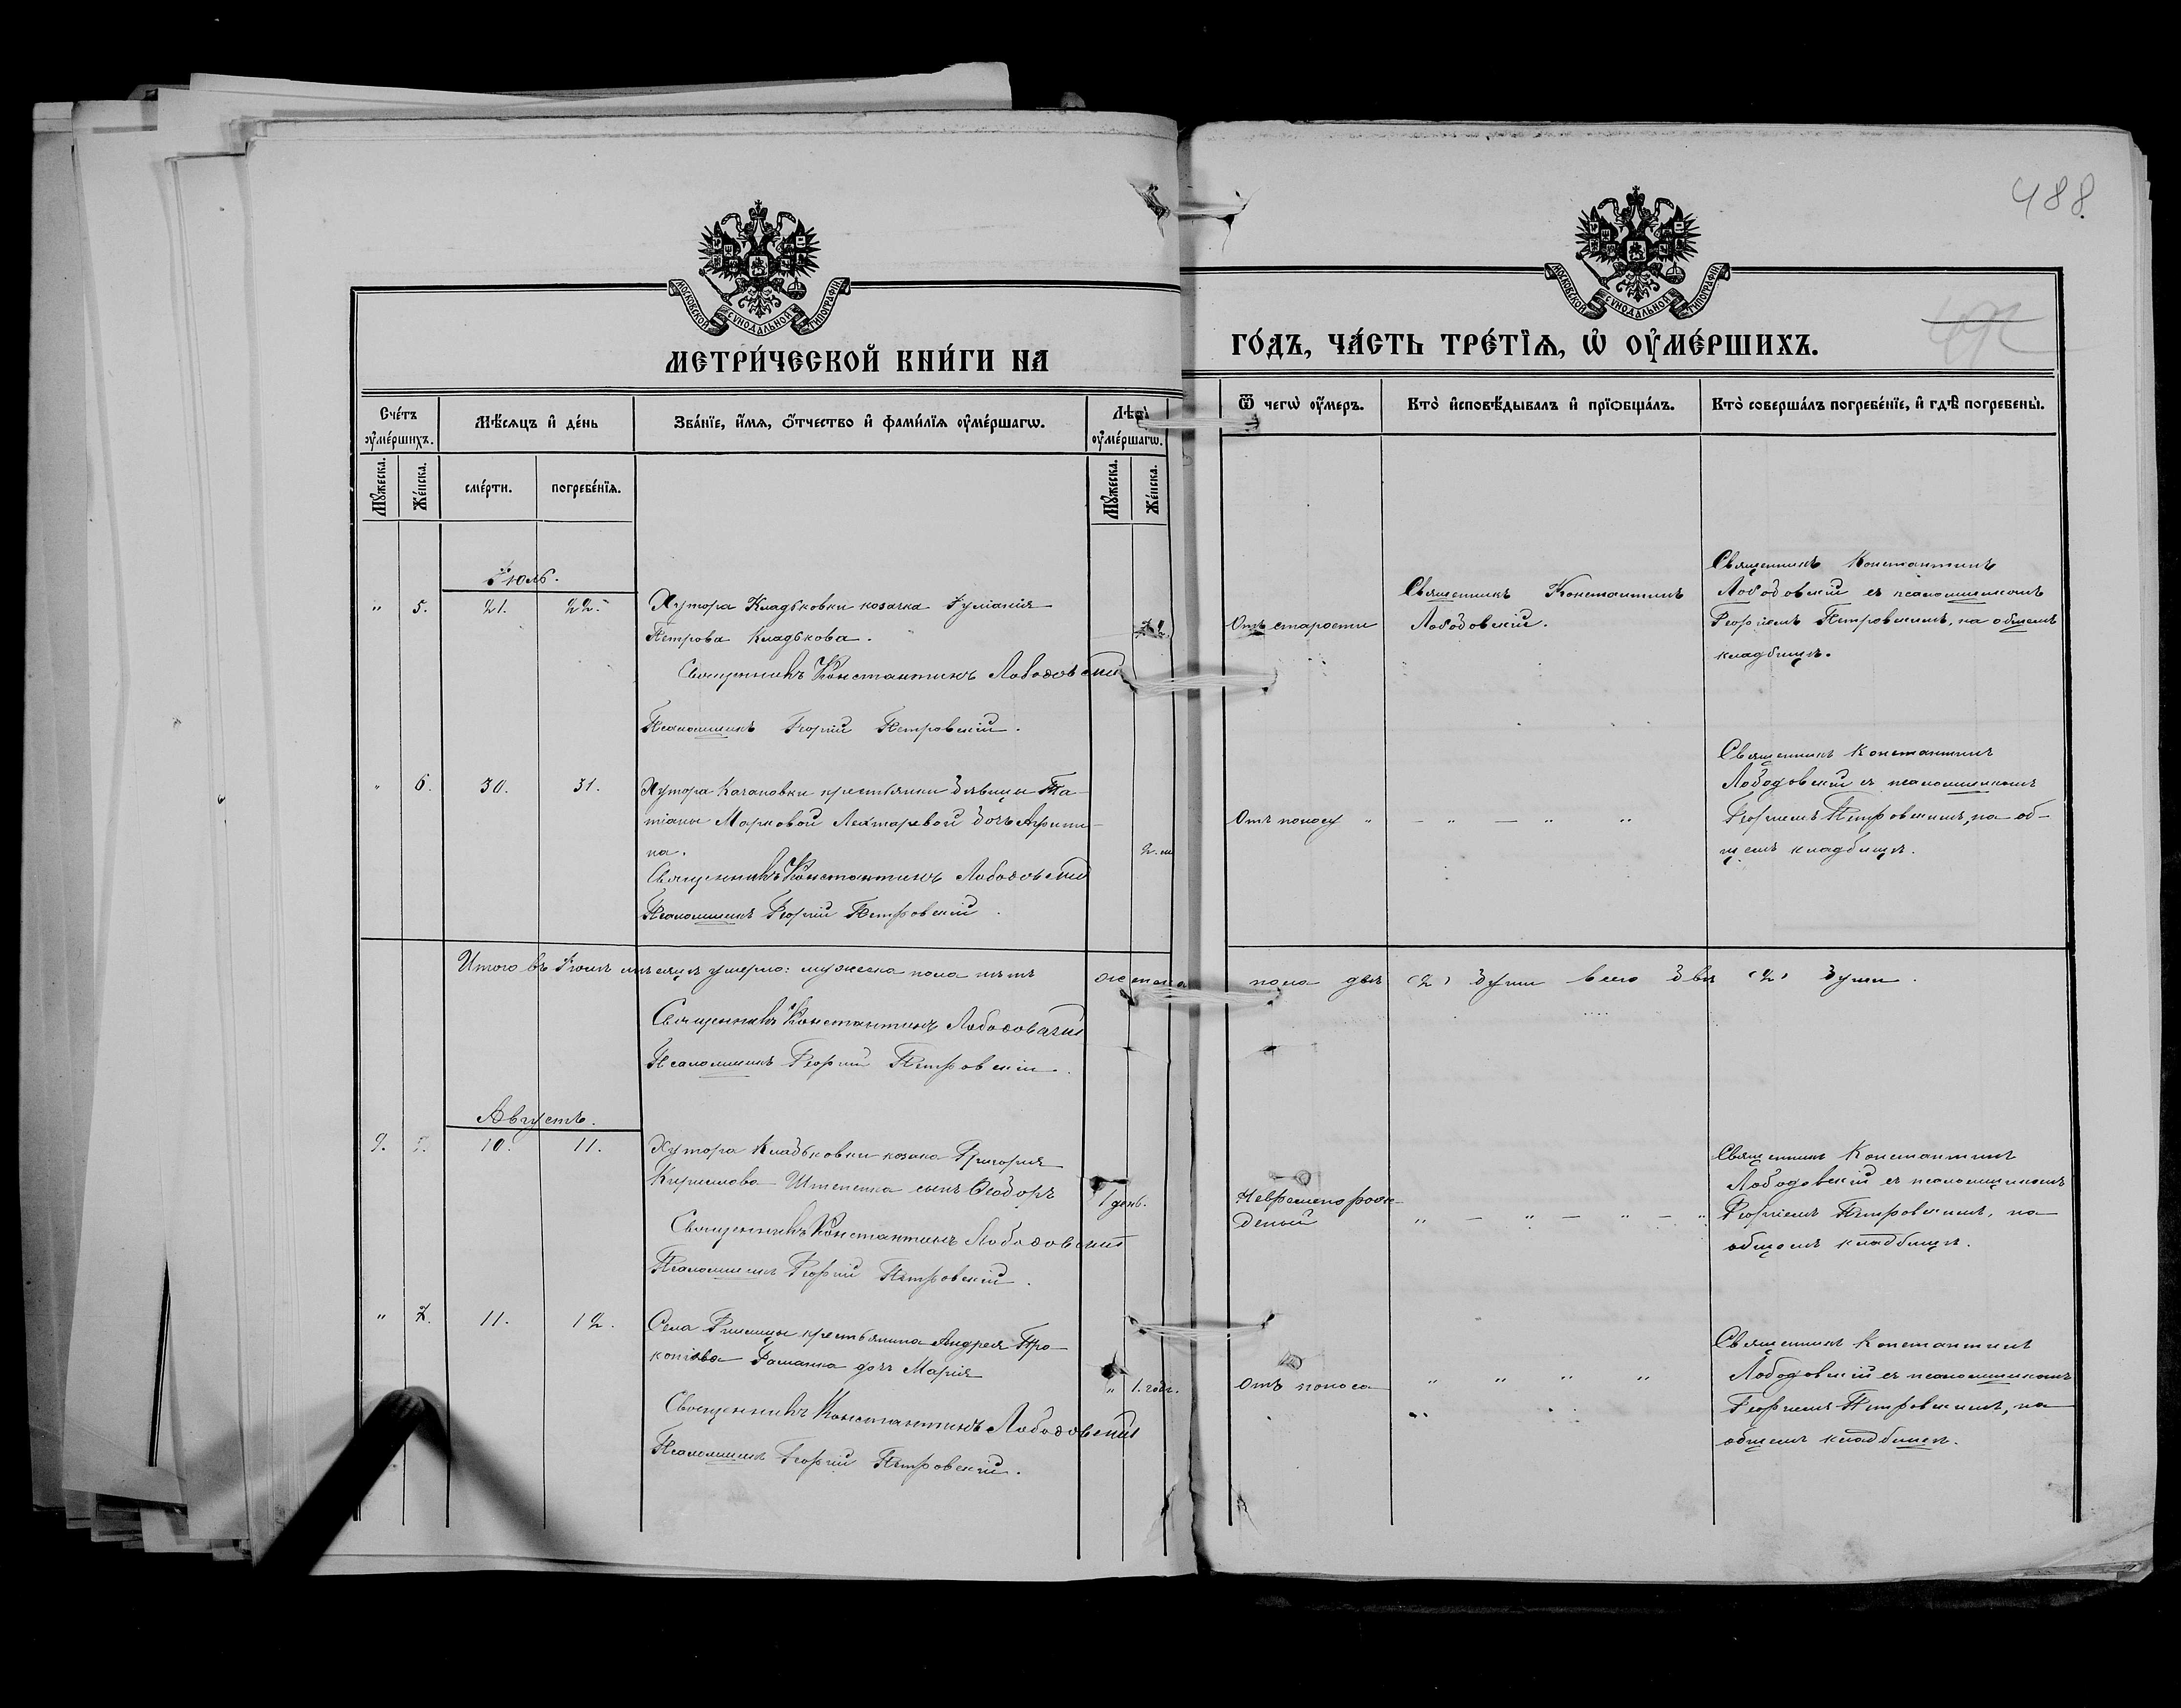 488
МОСКОВСКОЙ СУНОДАЛЬНОЙ ТИПОГРАФІИ
МОСКОВСКОЙ СУНОДАЛЬНОЙ ТИПОГРАФІИ
МЕТРИ́ЧЕСКОЙ КНИ́ГИ НА
ГО́ДЪ, ЧА́СТЬ ТРЕ́ТЇѦ, Ѡ҆ ОУ҆МЕ́РШИХЪ.
Сче́тъ оу҆ме́ршихъ.
Мѣ́сѧцъ и҆ де́нь
Зва́нїе, и҆́мѧ, ѻ҆́тчество и҆ фами́лїѧ оу҆ме́ршагѡ.
Лѣта̀ оу҆ме́ршагѡ.
Ѿ чегѡ̀ оу҆́меръ.
Кто̀ и҆сповѣ́дывалъ и҆ прїѡбща́лъ.
Кто̀ соверша́лъ погребе́нїе, и҆ гдѣ̀ погребены̀.
Мꙋ́жеска.
Же́нска.
сме́рти.
погребе́нїѧ.
Мꙋ́жеска.
Же́нска.
Іюль.
" 5. 21. 22.
Хутора Кладьковки козачка Іуліанія
Петрова Кладькова.
Священникъ Константинъ Лободовскій
Псаломщикъ Георгій Петровскій.
Отъ старости
Священникъ Константинъ
Лободовскій.
Священникъ Константинъ
Лободовскій съ псаломщикомъ
Георгіемъ Петровскимъ, на общемъ
кладбищѣ.
" 6. 30. 31.
Хутора Качановки крестьянки дѣвицы Та-
тіаны Марковой Лехтаревой дочь Агрипи-
на.
2. м
Священникъ Константинъ Лободовскій
Псаломщикъ Георгій Петровскій.
Отъ поносу " — " — " "
Священникъ Константинъ
Лободовскій съ псаломщикомъ
Георгіемъ Петровскимъ, на об-
щемъ кладбищѣ.
Итого въ Іюлѣ мѣсяцѣ умерло: мужеска пола нѣтъ женска пола двѣ (2) души всего двѣ (2) души.
Священникъ Константинъ Лободовскій
Псаломщикъ Георгій Петровскій.
Августъ.
9. 10. 11.
Хутора Кладьковки козака Григорія
Кириллова Штепенка сынъ Ѳеодоръ
1 день.
Священникъ Константинъ Лободовскій
Псаломщикъ Георгій Петровскій.
Невременорож-
деный
" — " — " — "
Священникъ Константинъ
Лободовскій съ псаломщикомъ
Георгіемъ Петровскимъ, на
общемъ кладбищѣ.
" 7. 11. 12.
Села крестьянина Андрея Про-
копіева Романка дочь Марія
" 1. годъ.
Священникъ Константинъ Лободовскій
Псаломщикъ Георгій Петровскій.
Отъ поноса
" " " "
Священникъ Константинъ
Лободовскій съ псаломщикомъ
Георгіемъ Петровскимъ, на
общемъ кладбищѣ.